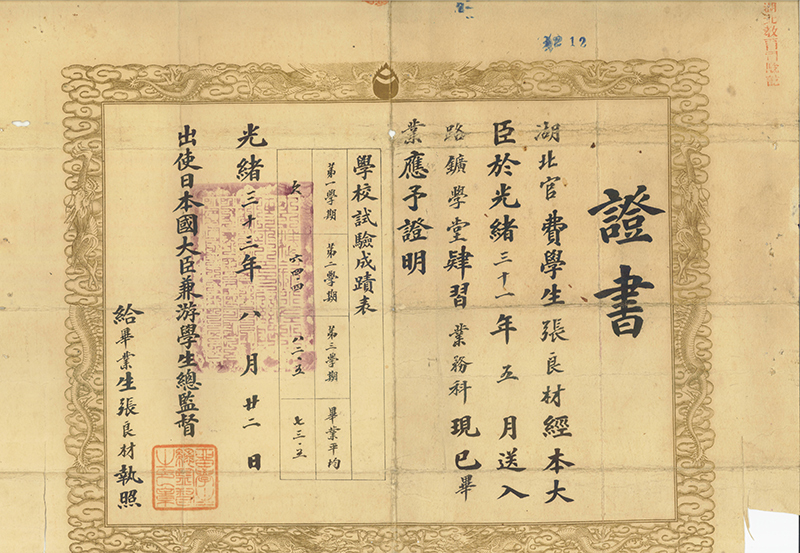 證書
湖北官費學生張良材經本大
臣於光緒三十一年五月送入
路鑛學堂肄習業務科現已畢
業應予證明
學校試驗成蹟表
第一學期 第二學期 第三學期 畢業平均
欠 六四.四 八二.五 七三.五
光緒三十三年八月廿二日
出使日本國大臣兼游學生總監督
給畢業生張良材執照
12